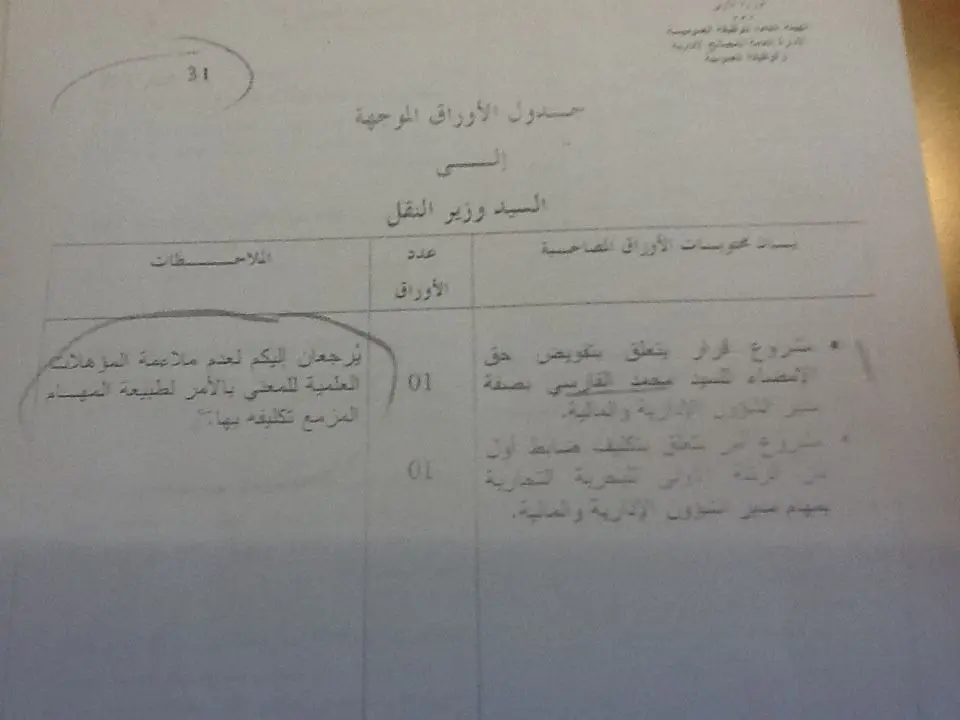 الهيئة العامة للوظيفة العمومية
الإدارة العامة للمصالح الإدارية
والوظيفة العمومية
31
جـدول الأوراق الموجهة
إلـــى
السيد وزير النقل
بيـــان محتويـات الأوراق المصاحبـة
عدد
الأوراق
الملاحـــــظات
• مشروع قرار يتعلق بتفويض حق
الإمضاء للسيد محمد الفارسي بصفة
مدير الشؤون الإدارية والمالية.
01
• مشروع أمر يتعلق بتكليف ضابط أول
من الرتبة الأولى للبحرية التجارية
بمهام مدير الشؤون الإدارية والمالية.
01
يُرجعان إليكم لعدم ملاءمة المؤهلات
العلمية للمعني بالأمر لطبيعة المهـــام
المزمع تكليفه بها.